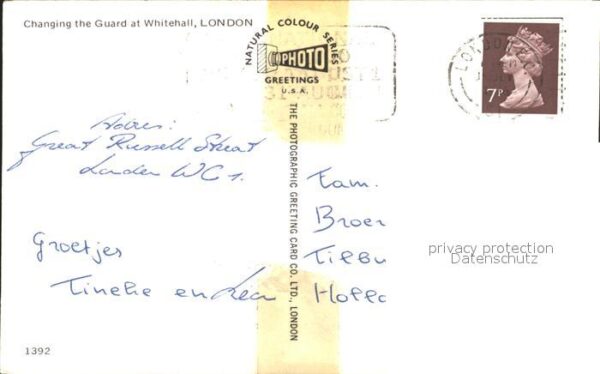 Changing the Guard at Whitehall, LONDON
NATURAL COLOUR SERIES
PHOTO
GREETINGS
U.S.A.
THE PHOTOGRAPHIC GREETING CARD CO. LTD., LONDON
LONDON
7P
Adres:
Great Russell Street
London WC1.
Groetjes
Tineke en
Fam.
Broer
Tilbu
Holla
privacy protection
Datenschutz
1392